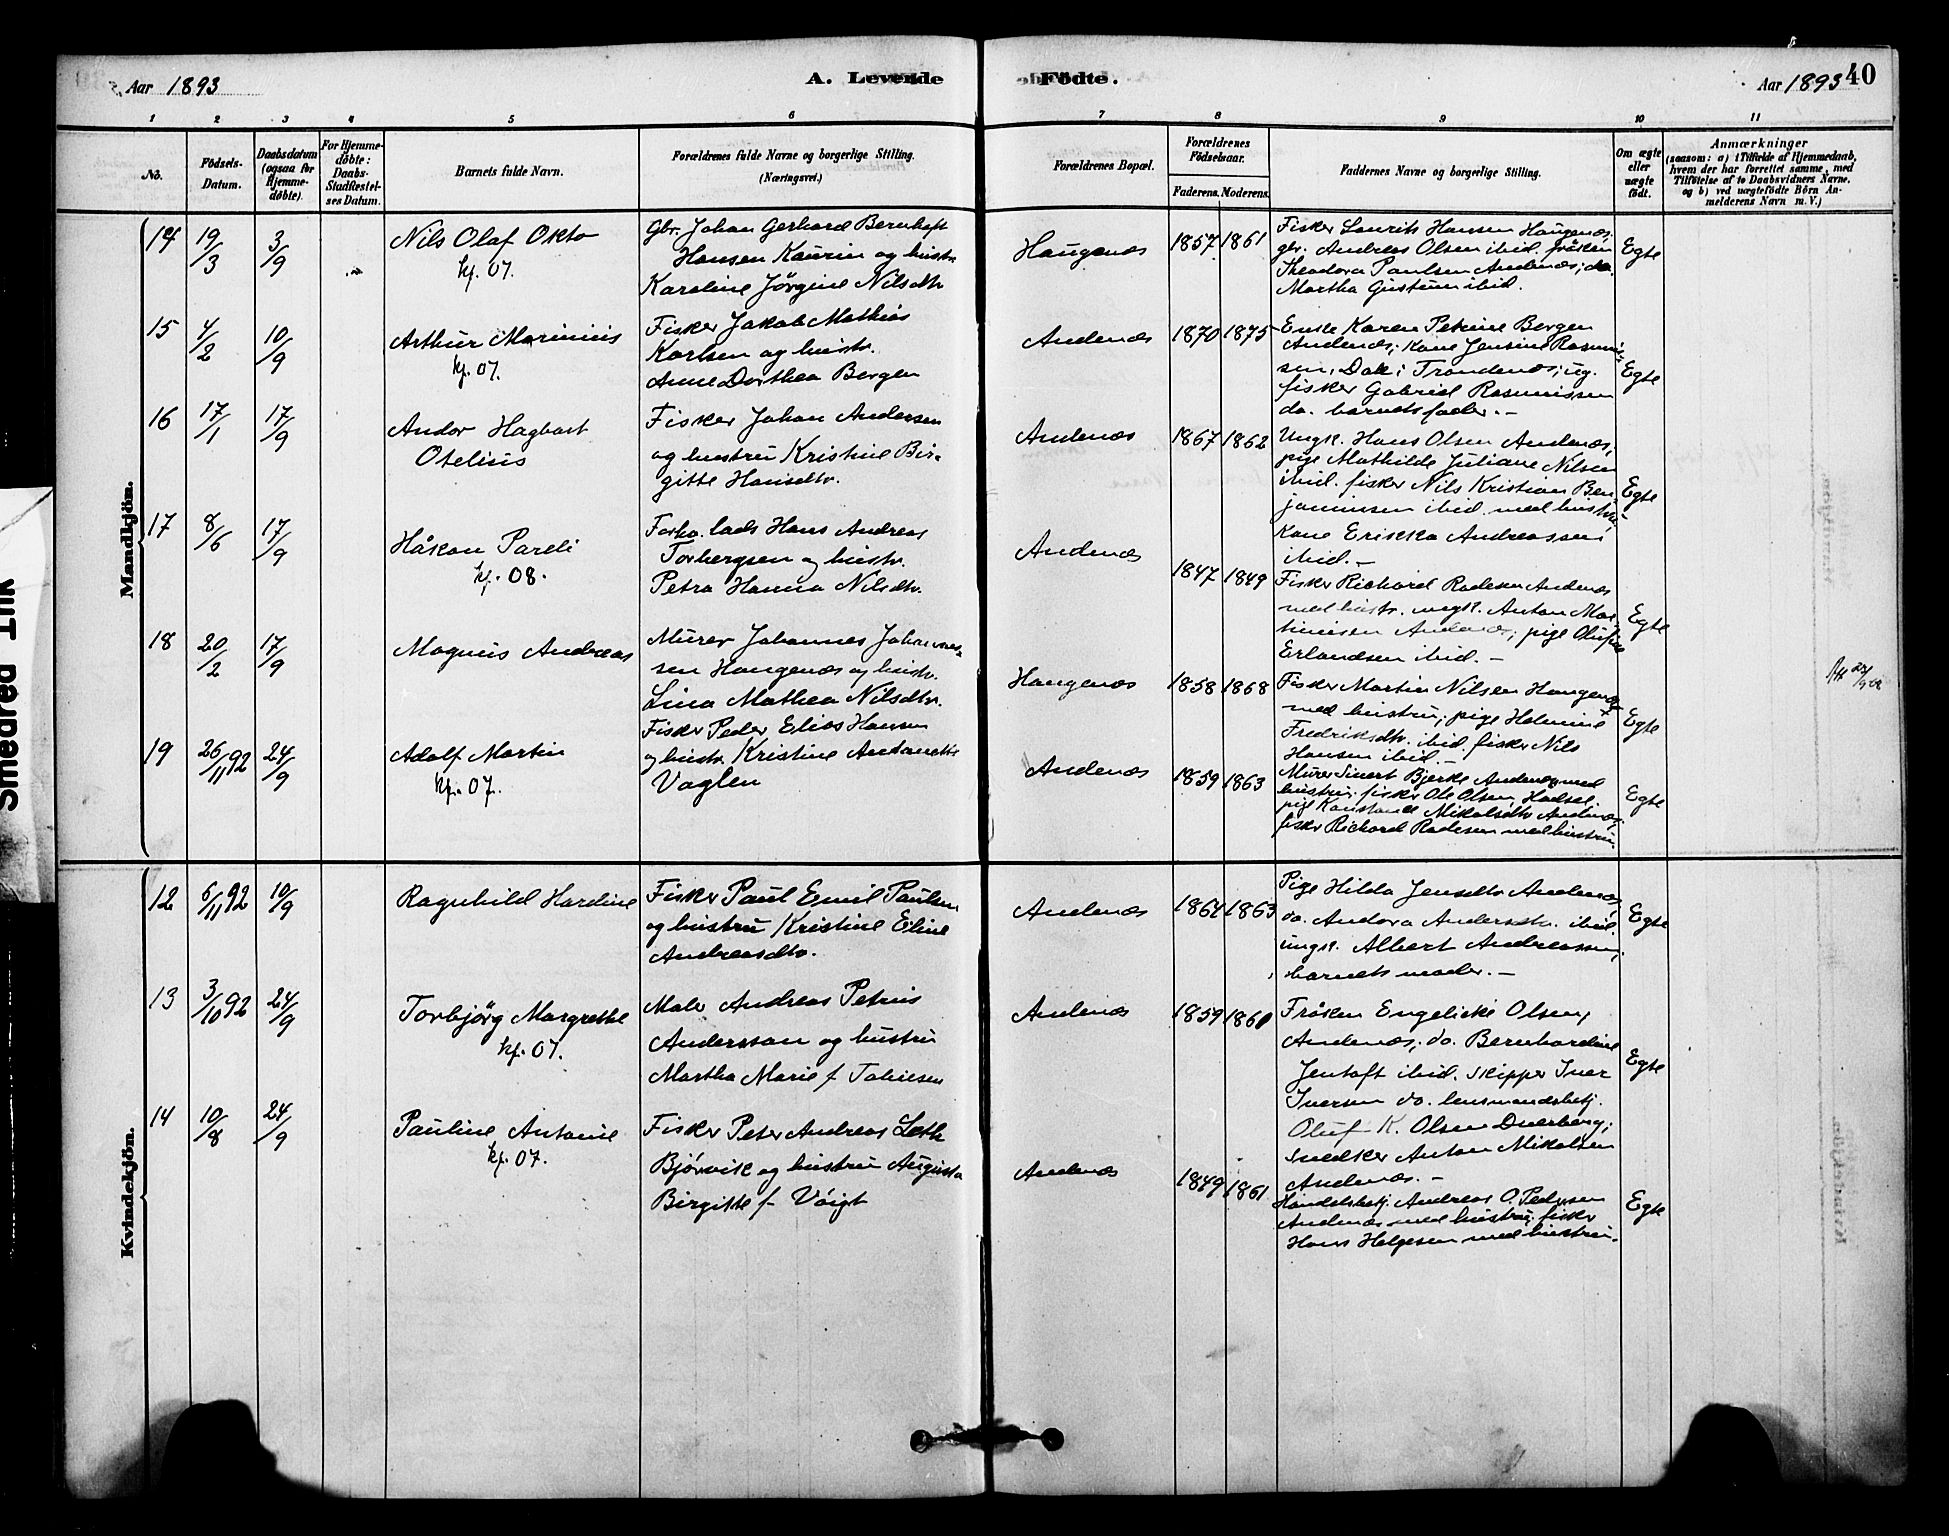 Aar 1893
A. Levende
Födte.
Aar 1893
40
1 2 3 4 5 6 7 8 9 10 11
No.
Födsels-
Datum.
Daabsdatum
(ogsaa for
Hjemme-
døbte).
For Hjemme-
døbte:
Daabs-
Stadfæstel-
ses Datum.
Barnets fulde Navn.
Forældrenes fulde Navne og borgerlige Stilling.
(Næringsvei.)
Forældrenes Bopæl.
Forældrenes
Födselsaar.
Faderens. Moderens.
Faddernes Navne og borgerlige Stilling.
Om ægte
eller
uægte
födt.
Anmærkninger
(saasom: a) i Tilfælde af Hjemmedaab,
hvem der har forrettet samme, med
Tilföielse af to Daabsvidners Navne,
og b) ved uægtefödte Börn An-
melderens Navn m. V.)
Mandkjön.
14
19/3
3/9
Nils Olaf Okto
kf. 07.
Gbr. Johan Gerhard Bernhoft
Hansen Kaurin og hustr.
Karoline Jørgine Nilsdtr
Haugenæs
1857 1861
Fisker Laurits Hansen Haugenæs;
gbr. Andreas Olsen ibid. frøken
Theodora Paulsen Andenæs; do.
Martha Gustum ibid.
Egte
15
4/2
10/9
Arthur Marinius
kf. 07.
Fisker Jakob Mathias
Karlsen og hustr.
Anne Dorthea Bergen
Andenæs
1870 1875
Enke Karen Petrine Bergen
Andenæs; kone Jensine Rasmus-
sen, Dale i Trondenæs; ug.
fisker Gabriel Rasmussen
do. barnets fader. –
Egte
16
17/1
17/9
Andor Hagbart
Otelius
Fisker Johan Andersen
og hustru Kristine Bir-
gitte Hansdtr.
Andenæs
1867 1862
Ungk. Hans Olsen Andenæs,
pige Mathilde Juliane Nilsen
ibid. fisker Nils Kristian Ben-
jaminsen ibid. med hustru,
Kone Erikka Andreassen
ibid. –
Egte
17
8/6
17/9
Håkon Pareli
kf. 08.
Forhv. lods Hans Andreas
Torbergsen og hustr.
Petra Hanna Nilsdtr.
Andenæs
1847 1849
Fisker Richard Radesen Andenæs
med hustr. ungk. Anton Mar-
tinusen Andenæs; pige
Erlandsen ibid. –
Egte
18
20/2
17/9
Magnus Andreas
Murer Johannes Johannes-
sen Haugenæs og hustr.
Lina Mathea Nilsdtr.
Haugenæs
1858 1868
Fisker Martin Nilsen Haugenæs
med hustru; pige Helmine
Fredriksdtr. ibid. fisker Nils
Hansen ibid. –
Egte
19
26/11 92
24/9
Adolf Martin
kf. 07.
Fisker Peder Elias Hansen
og hustr. Kristine Andanette
Vaglen
Andenæs
1859 1863
Murer Sivert Bjerke Andenæs med
hustru; fisker Ole Olsen Hadsel;
pige Konstanse Mikalsdtr Andenæs;
fisker Richard Radesen med hustru.
Egte
Kvindekjön.
12
6/11 92
10/9
Ragnhild Hardine
Fisker Paul Emil Paulsen
og hustru Kristine Eline
Andreasdtr.
Andenæs
1864 1863
Pige Hilda Jensdtr Andenæs,
do. Andora Andersdtr. ibid.
ungk. Albert Andreassen,
barnets moder. –
Egte
13
3/10 92
24/9
Torbjørg Margrethe
kf. 07.
Maler Andreas Petrus
Andersson og hustru
Martha Marie f. Tobiesen
Andenæs
1859 1860
Frøken Engelicke Olsen,
Andenæs; do. Bernhardine
Jentoft ibid. skipper Iver
Iversen do. lensmandsbetj.
Oluf K. Olsen Dverberg;
snedker Anton Mikalsen
Andenæs. –
Egte
14
10/8
24/9
Pauline Antonie
kf. 07.
Fisker Peter Andreas Leth
Bjørvik og hustru Augusta
Birgitte f. Voigt
Andenæs
1849 1861
Handelsbetj. Andreas O. Pedersen
Andenæs med hustru; fisker
Hans Helgesen med hustru.
Egte